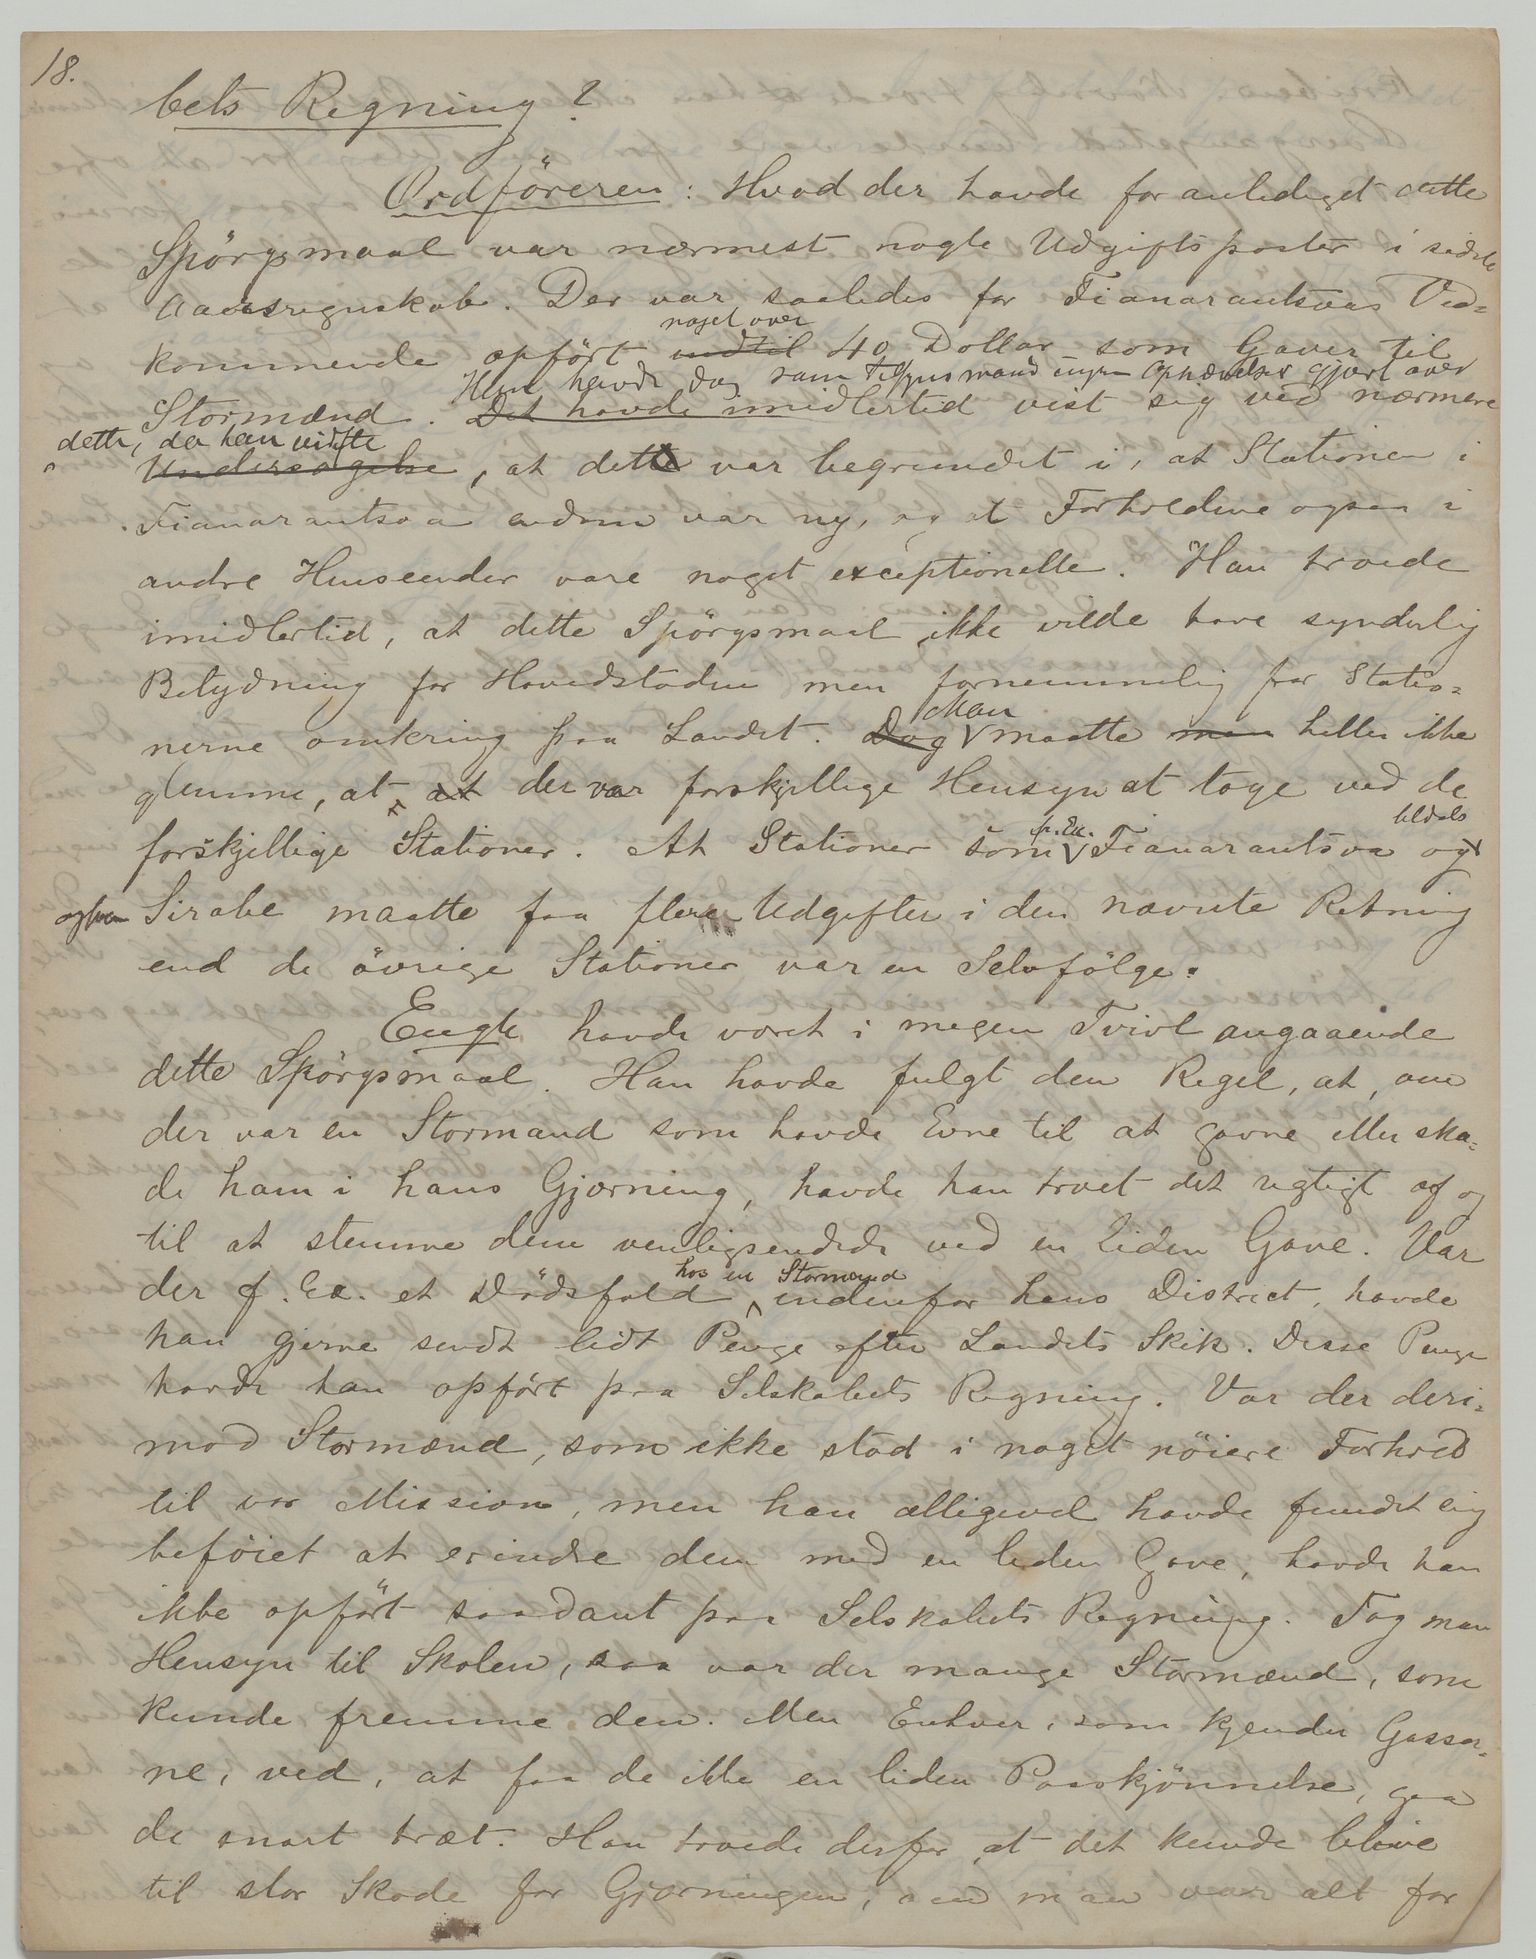 18.
bets Regning?
Ordföreren: Hvad der havde foranlediget dette
Spörgsmaal var nærmest nogle Udgiftsposter i sidste
Aarsregnskab. Der var saaledes for Fianarantsoas Ved=
noget over
kommende opfört indtil 40 Dollar som Gaver til
Han havde dog som Tilsynsmand ingen Ophævelser gjort over
Stormænd. Det havde imidlertid vist sig ved nærmere
dette, da han vidste
Undersøgelse, at dette var begrundet i, at Stationen i
Fianarantsoa endnu var ny, og at Forholdene ogsaa i
andre Henseender vare noget exceptionelle. Han troede
imidlertid, at dette Spörgsmaal ikke vilde have synderlig
Betydning for Hovedstaden men fornemmelig for Statio=
Man
nerne omkring paa Landet. Dog maatte man heller ikke
glemme, at at der var forskjellige Hensyn at tage ved de
forskjellige Stationer. At Stationer som f. Ex. Fianarantsoa og tildels
ogsaa Sirabe maatte faa flere Udgifter i den nævnte Retning
end de övrige Stationer var en Selvfölge.
Engh havde været i megen Tvivl angaaende
dette Spörgsmaal. Han havde fulgt den Regel, at, om
der var en Stormand som havde Evne til at gavne eller ska=
de ham i hans Gjerning, havde han troet det rigtigt af og
til at stemme dem venligsindede ved en liden Gave. Var
hos en Stormand
der f. Ex. et Dödsfald indenfor hans District, havde
han gjerne sendt lidt Penge efter Landets Skik. Disse Penge
havde han opfört paa Selskabets Regning. Var der deri=
mod Stormænd, som ikke stod i noget nöiere Forhold
til vor Mission, men han alligevel havde fundet sig
beföiet at erindre dem med en liden Gave, havde han
ikke opfört saadant paa Selskabets Regning. Tog man
Hensyn til Skolen, saa var der mange Stormænd, som
kunde fremme den. Men Enhver, som kjender Gasser=
ne, ved, at faa de ikke en liden Paaskjönnelse, gaa
de snart træt. Han troede derfor at det kunde blive
til stor Skade for Gjerningen, om man var alt for